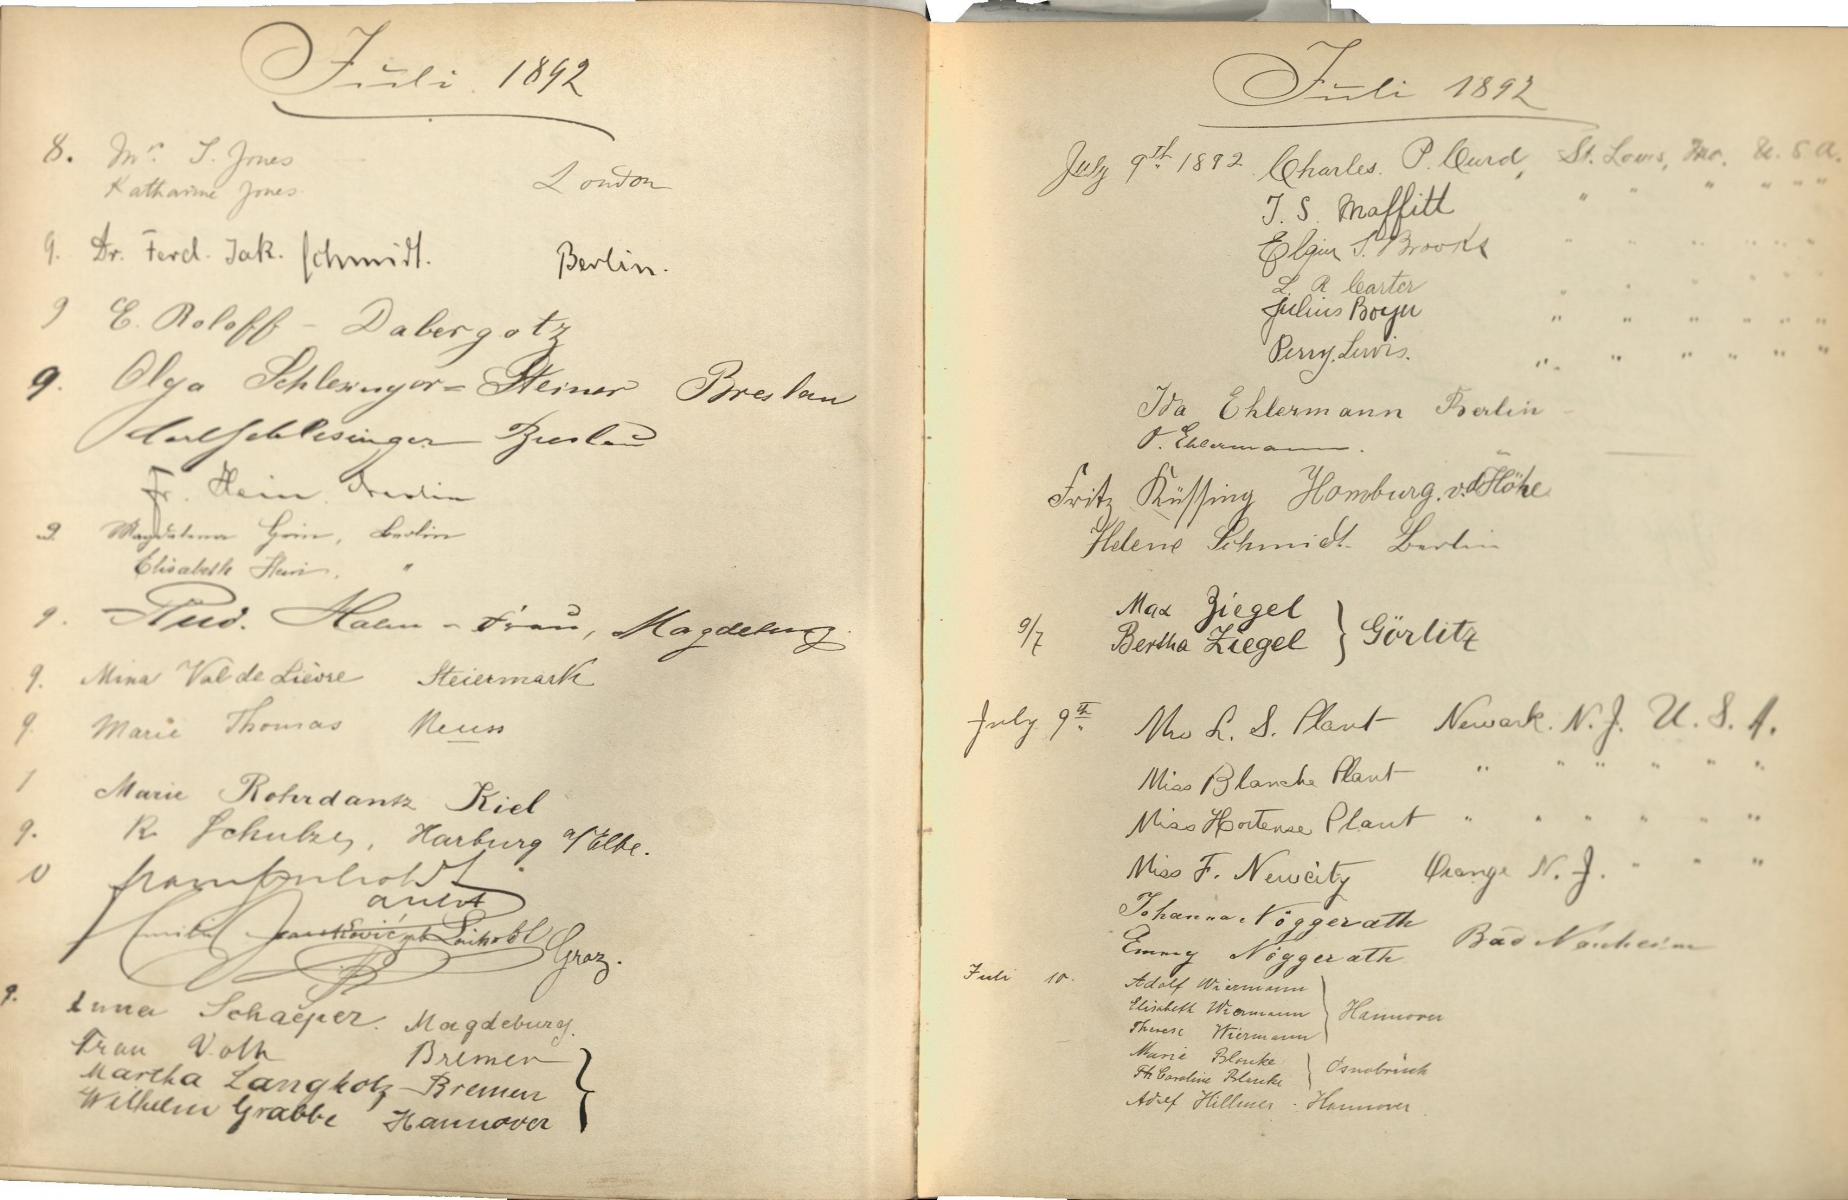 Juli 1892
8. Mr. S. Jones
Katharine Jones London
9. Dr. Ferd. Jak. Schmidt. Berlin.
9 E. Roloff - Dabergotz
9. Olga Schlesinger = Steiner Breslau
Carl Schlesinger Breslau
Fr. Hein
9. Magdalena Hein, Berlin
Elisabeth Hein, "
9. Rud. Hahn - Frau, Magdeburg.
9. Mina Val de Lièvre Steiermark
9. Marie Thomas Neuss
Marie Rohrdantz Kiel
9. R. Schulze, Harburg a/Elbe.
Graz.
9. Anna Schaeper. Magdeburg.
Frau Voth Bremen
Martha Langkotz - Bremen
Wilhelm Grabbe Hannover
Juli 1892
July 9th 1892 Charles. P. Curd, St. Louis, Mo. U. S. A.
J. S. Maffitt " " " " "
Elgin S. Brooks " " " " " "
L. R. Carter " " " " " "
Julius Boyer " " " " " "
Perry. Lewis. " " " " " "
Ida Ehlermann Berlin -
O. Ehlermann.
Fritz Küssing Homburg. v. d. Höhe
Helene Schmidt Berlin
Max Ziegel
9/7 Bertha Ziegel } Görlitz
July 9th Mrs L. S. Plant Newark. N. J. U. S. A.
Miss Blanche Plant " " " " " "
Miss Hortense Plant " " " " " "
Miss F. Newcity Orange N. J. " " "
Johanna Nöggerath
Emmy Nöggerath Bad Nauheim
Juli 10. Adolf Wiermann
Elisabeth Wiermann } Hannover
Therese Wiermann
Marie Blanke
Caroline Blanke } Osnabrück
Adolf Hillmer - Hannover.